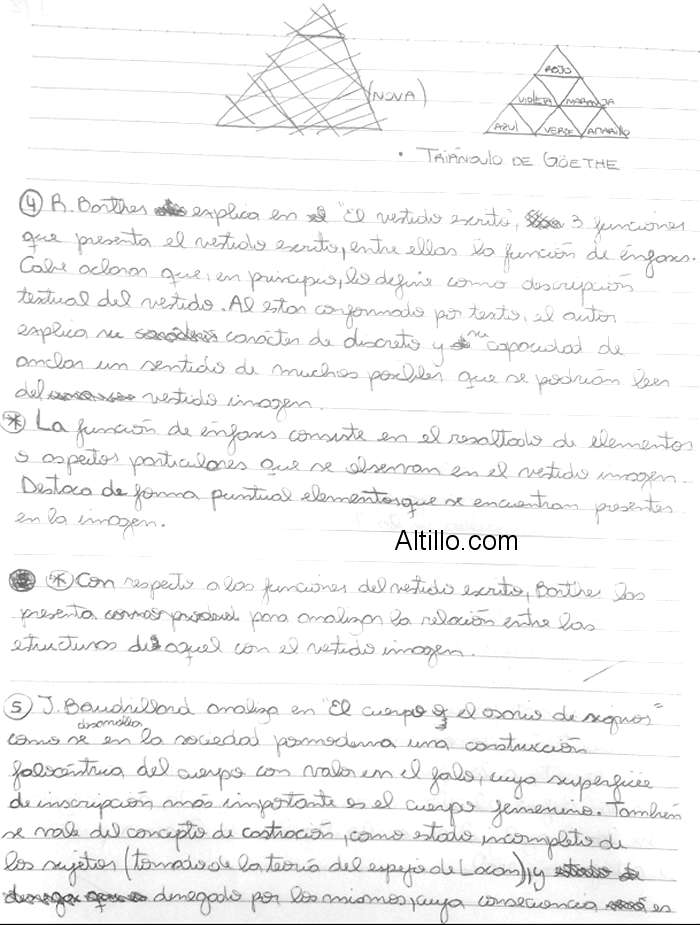 (NOVA)
ROJO
VIOLETA MARANJA
AZUL VERDE AMARILLO
• TRIÁNGULO DE GÖETHE
4 R. Barthes explica en "El vestido escrito", 3 funciones
que presenta el vestido escrito, entre ellas la función de énfasis.
Cabe aclarar que, en principio, lo define como descripción
textual del vestido. Al estar conformado por texto, el autor
explica su carácter de discreto y su capacidad de
anclar un sentido de muchos posibles que se podrían leer
del vestido imagen.
* La función de énfasis consiste en el resaltado de elementos
o aspectos particulares que se observan en el vestido imagen.
Destaca de forma puntual elementos que se encuentran presentes
en la imagen.
Altillo.com
* Con respecto a las funciones del vestido escrito, Barthes las
presenta para analizar la relación entre las
estructuras de aquel con el vestido imagen.
5 J. Baudrillard analiza en "El cuerpo o el osario de signos"
como se desarrolla en la sociedad posmoderna una construcción
falocéntrica del cuerpo con valor en el falo, cuya superficie
de inscripción más importante es el cuerpo femenino. También
se vale del concepto de castración, como estado incompleto de
los sujetos (tomado de la teoría del espejo de Lacan), y
denegado por los mismos, cuya consecuencia es